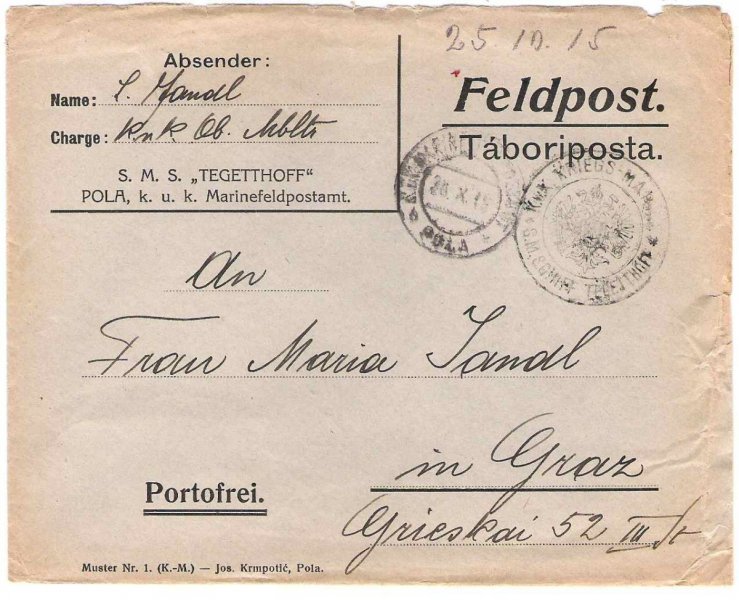 25.10.15
Absender:
Name: L. Jandl
Charge: k u k Ob.
S. M. S. „TEGETTHOFF"
POLA, k. u. k. Marinefeldpostamt.
Feldpost.
Táboriposta.
POLA
K.u.K. KRIEGS-MAR
S.M.S. TEGETTHOFF
An
Frau Maria Jandl
in Graz
Grieskai 52 III St
Portofrei.
Muster Nr. 1. (K.-M.) — Jos. Krmpotić, Pola.